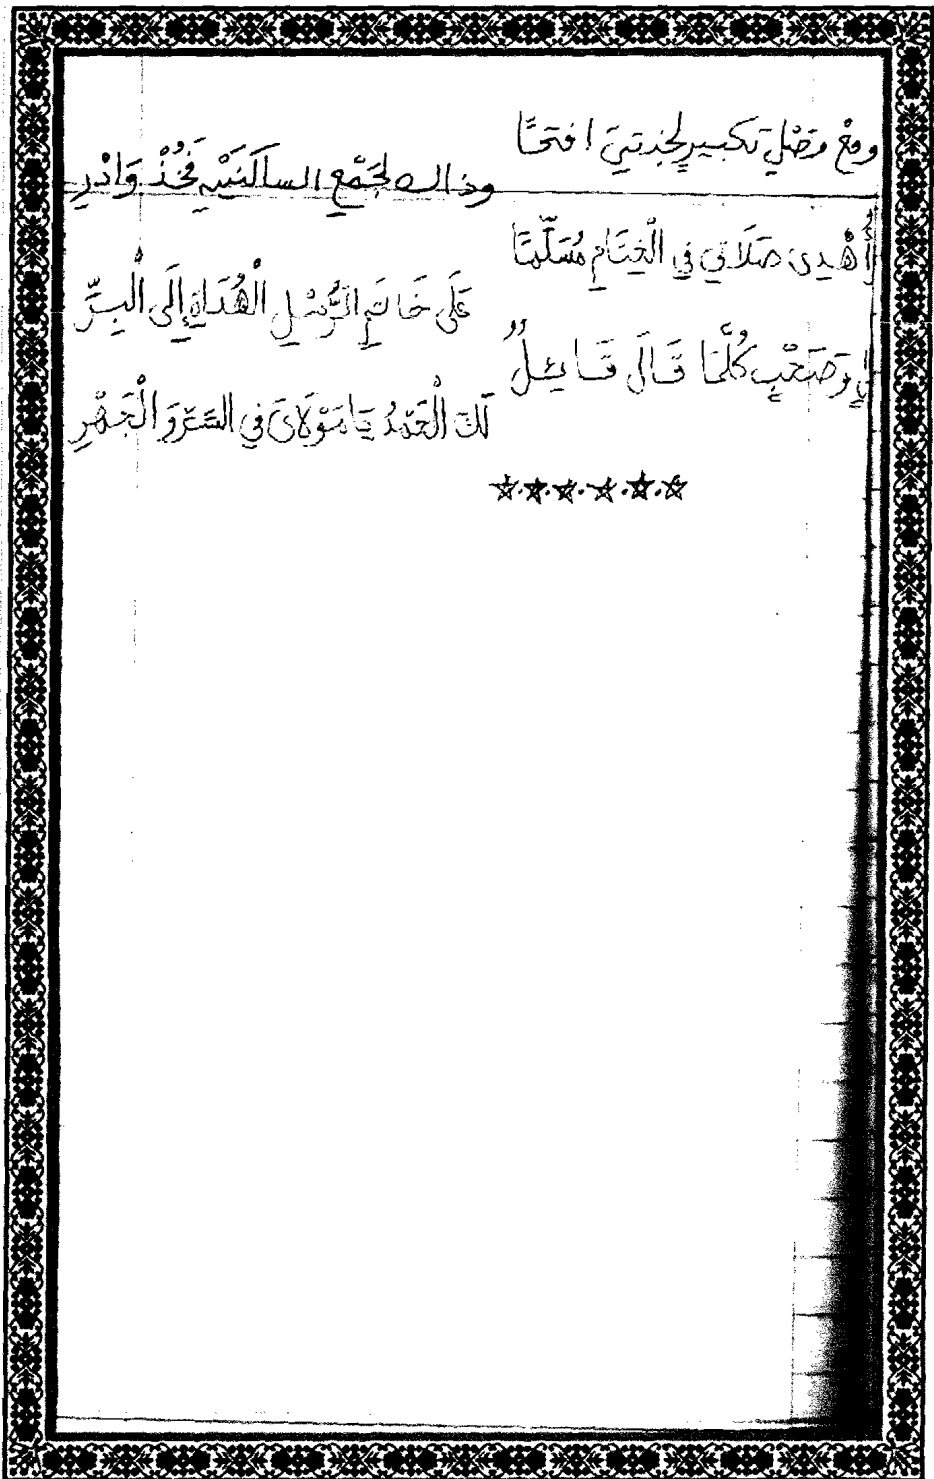 ومع وصل تكبير افتحًا
وذاك لجَمْعِ الساكنَيْنِ فَخُذْ وَادْرِ
أُهْدِي صَلَاتِي فِي الْخِتَامِ مُسَلِّمًا
عَلَى خَاتَمِ الرُّسْلِ الْهُدَاةِ إِلَى الْبِرِّ
وَصَحْبٍ كُلَّمَا قَالَ قَائِلُ
لَكَ الْحَمْدُ يَا مَوْلَايَ فِي السِّرِّ وَالْجَهْرِ